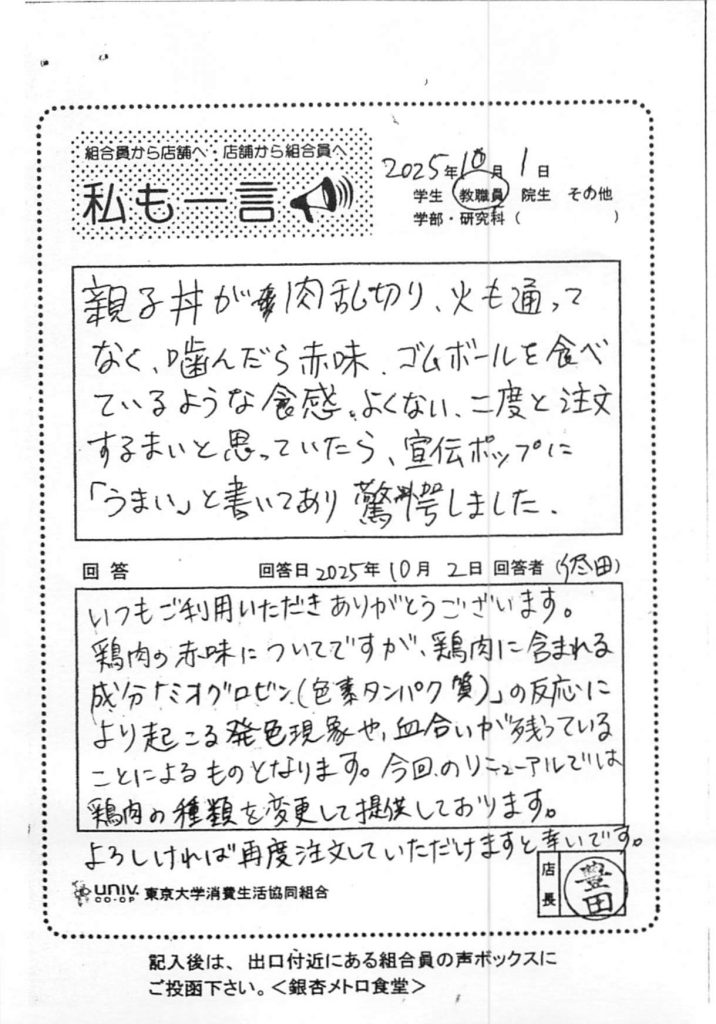 組合員から店舗へ・店舗から組合員へ
私も一言
2025年10月1日
学生 教職員 院生 その他
学部・研究科（　　　）
親子丼が肉乱切り、火も通って
なく、噛んだら赤味、ゴムボールを食べ
ているような食感。よくない、二度と注文
するまいと思っていたら、宣伝ポップに
「うまい」と書いてあり驚愕しました、
回答 回答日2025年10月2日 回答者（田）
いつもご利用いただきありがとうございます。
鶏肉の赤味についてですが、鶏肉に含まれる
成分「ミオグロビン(色素タンパク質)」の反応に
より起こる発色現象や、血合いが残っている
ことによるものとなります。今回のリニューアルでは
鶏肉の種類を変更して提供しております。
よろしければ再度注文していただけますと幸いです。
univ. CO-OP 東京大学消費生活協同組合
店長 豊田
記入後は、出口付近にある組合員の声ボックスに
ご投函下さい。＜銀杏メトロ食堂＞